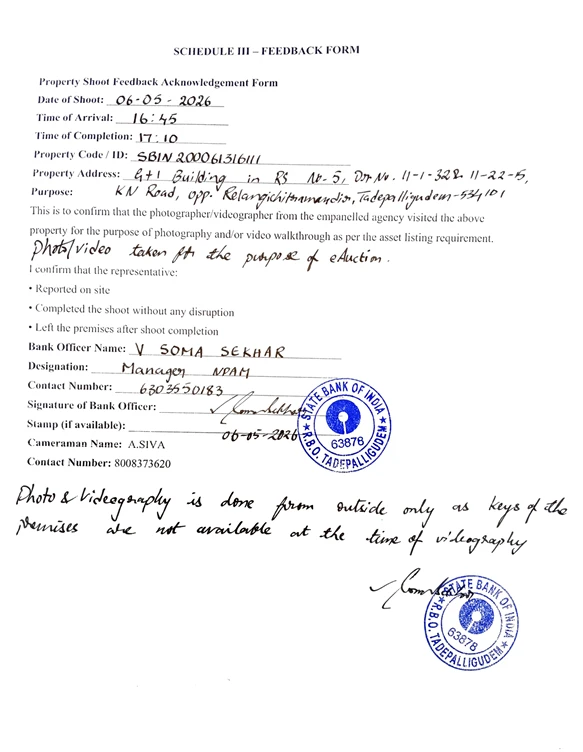 SCHEDULE III – FEEDBACK FORM
Property Shoot Feedback Acknowledgement Form
Date of Shoot: 06-05-2026
Time of Arrival: 16:45
Time of Completion: 17:10
Property Code / ID: SBIN200061316111
Property Address: G+1 Building in RS No. 5, Dor No. 11-1-32 & 11-22-5,
Purpose: KN Road, opp. Relangichitramandir, Tadepalligudem-534101
This is to confirm that the photographer/videographer from the empanelled agency visited the above
property for the purpose of photography and/or video walkthrough as per the asset listing requirement.
Photo/video taken for the purpose of eAuction.
I confirm that the representative:
• Reported on site
• Completed the shoot without any disruption
• Left the premises after shoot completion
Bank Officer Name: V SOMA SEKHAR
Designation: Manager NPAM
Contact Number: 6303550183
Signature of Bank Officer:
Stamp (if available): 06-05-2026
STATE BANK OF INDIA
63878
R.B.O. TADEPALLIGUDEM
Cameraman Name: A.SIVA
Contact Number: 8008373620
Photo & Videography is done from outside only as keys of the
premises are not available at the time of videography
STATE BANK OF INDIA
63878
R.B.O. TADEPALLIGUDEM